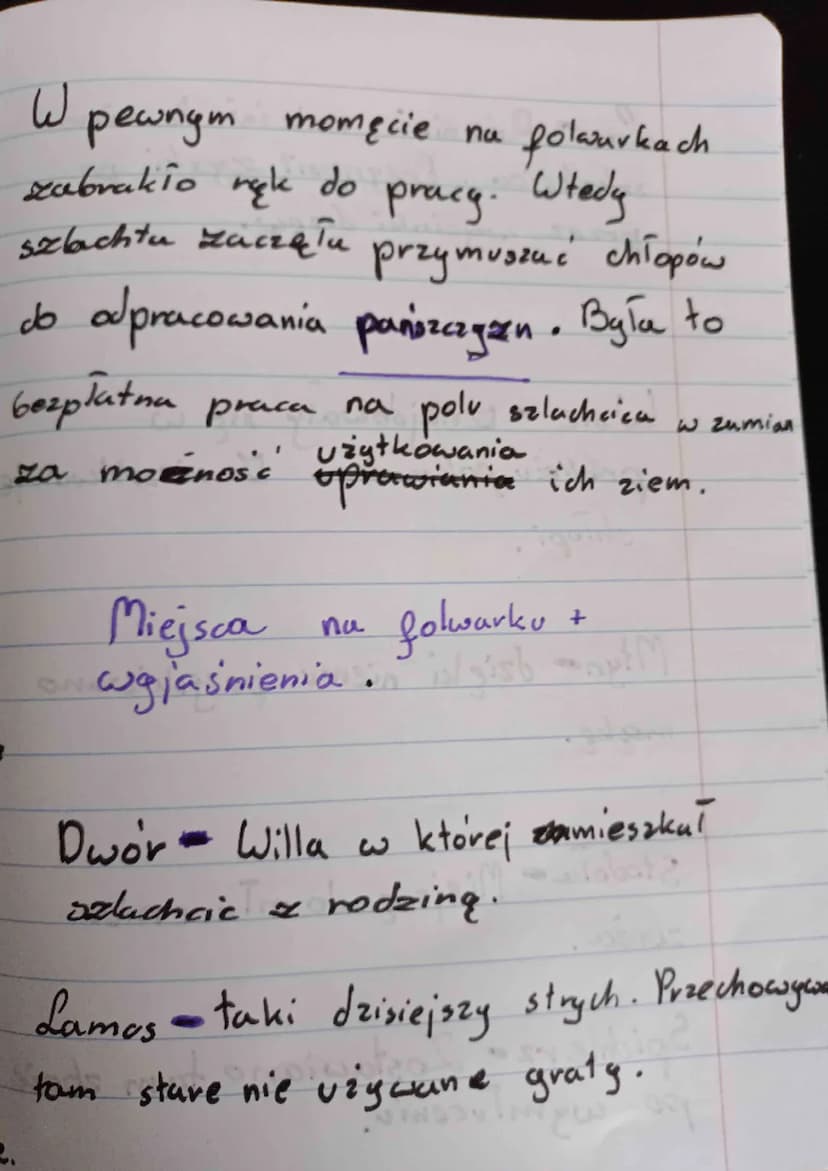 W pewnym momęcie na folwarkach
zabrakło rąk do pracy. Wtedy
szlachta zaczęła przymuszać chłopów
do odpracowania pańszczyzn. Była to
bezpłatna praca na polu szlachcica w zamian
za możność użytkowania
uprawiania ich ziem.
Miejsca na folwarku +
wyjaśnienia.
Dwór - Willa w której zamieszkał
szlachcic z rodziną.
Lamos - taki dzisiejszy strych. Przechowywa
tam stare nie używane graty.